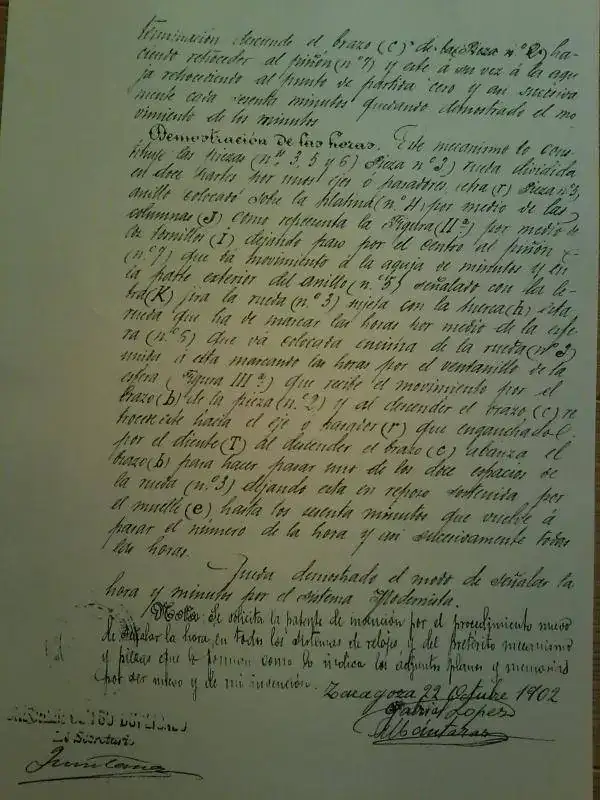 terminación desciende el brazo (C) de la pieza nº 2, ha-
ciendo retroceder al piñón (nº 7) y este á su vez á la agu-
ja retrocediendo al punto de partida cero y asi sucesiva
mente cada sesenta minutos quedando demostrado el mo
vimiento de los minutos
Demostración de las horas. Este mecanismo lo cons-
tituye las piezas (nos 3, 5 y 6) Pieza nº 3) rueda dividida
en doce partes por unos ejes ó pasadores letra (r) Pieza nº 5
anillo colocado sobre la platina (nº 4) por medio de las
columnas (J) como representa la Figura (IIª) por medio de
los tornillos (i) dejando paso por el centro al piñón
(nº 7) que dá movimiento á la aguja de minutos y en
la parte exterior del anillo (nº 5) señalado con la le-
tra (K) jira la rueda (nº 3) sujeta con la tuerca (h) esta
rueda que ha de marcar las horas por medio de la esfe-
ra (nº 6) que vá colocada encima de la rueda (nº 3)
unida á esta marcando las horas por el ventanillo de la
esfera (Figura IIIª) que recibe el movimiento por el
brazo (b) de la pieza (nº 2) y al decender el brazo (c) re
trocede este hacia el eje ó pasador (r) que enganchado
por el diente (T) al decender el brazo (c) abanza el
brazo (b) para hacer pasar uno de los doce espacios de
la rueda (nº 3) dejando esta en reposo sostenida por
el muelle (e) hasta los sesenta minutos que vuelve á
pasar el número de la hora y asi sucesivamente todas
las horas.
Queda demostrado el modo de señalar la
hora y minutos por el sistema Modernista.
Nota: Se solicita la patente de invención por el procedimiento nuevo
de señalar la hora en todos los sistemas de relojes y del preterito mecanismo
y piezas que le forman como lo indica los adjuntos planos y memorias
por ser nuevo y de mi invención. Zaragoza 22 Octubre 1902
Lopez
Alcántaras
El Secretario